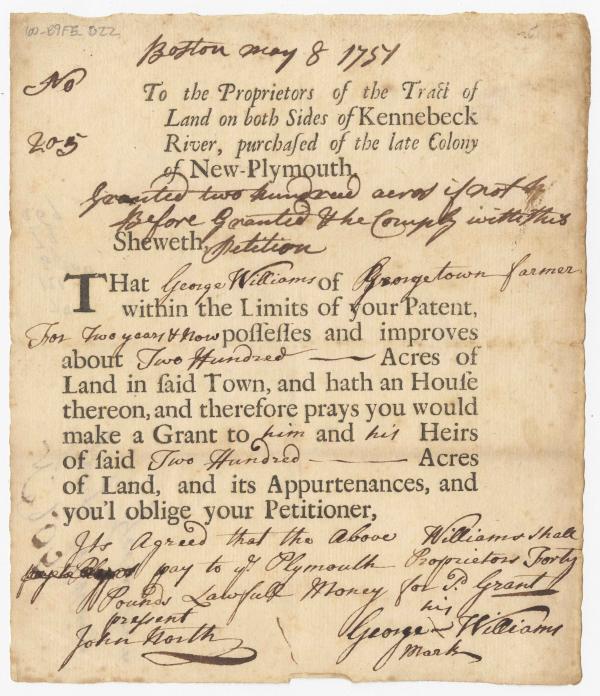 60-89FE DZZ
Boston may 8 1751
No
To the Proprietors of the Tract of
Land on both Sides of Kennebeck
205
River, purchaſed of the late Colony
of New-Plymouth,
Granted two hundred acres if not
Before Granted & he Comply with this
Sheweth, Petition
THat George Williams of Georgetown farmer
within the Limits of your Patent,
For Two years & now poſſeſſes and improves
about Two Hundred Acres of
Land in ſaid Town, and hath an Houſe
thereon, and therefore prays you would
make a Grant to him and his Heirs
of ſaid Two Hundred Acres
of Land, and its Appurtenances, and
you'l oblige your Petitioner,
Its Agreed that the Above Williams shall
pay to ye Plymouth Proprietors Forty
Pounds Lawfull Money for sd. Grant
present his
John North George Williams
mark